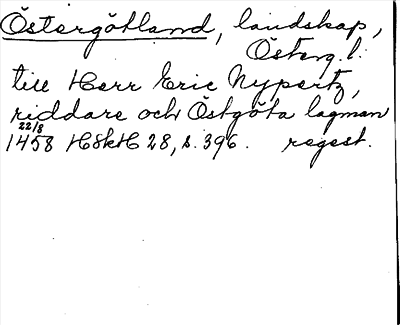 Östergötland, landskap,
Österg. l.
till Herr Eric Nypertz,
riddare och Östgöta lagman
22/8
1458 HSkH 28, s. 396. regest.